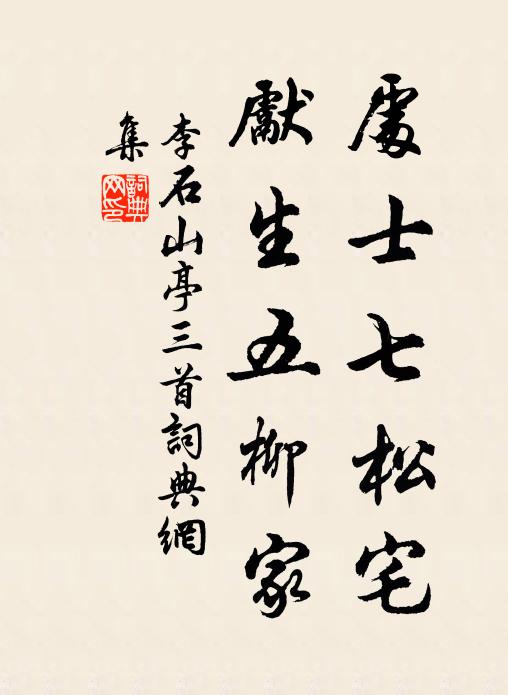 處士七松宅
獻生五柳家
李石山亭三首詞典網
集
詞典
網印